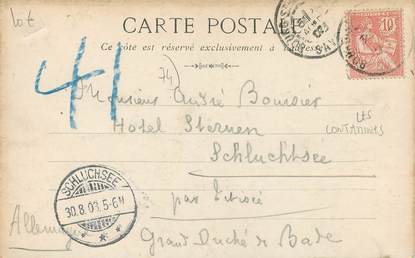 lot
CARTE POSTALE
Ce côté est réservé exclusivement à l'adresse.
10
41
74
Monsieur André Boursier
Hotel Sternen
LES
CONTAMINES
Schluchtsée
SCHLUCHSEE
30.8.03.5-6N
par Titisée
Allemagne
Grand Duché de Bade